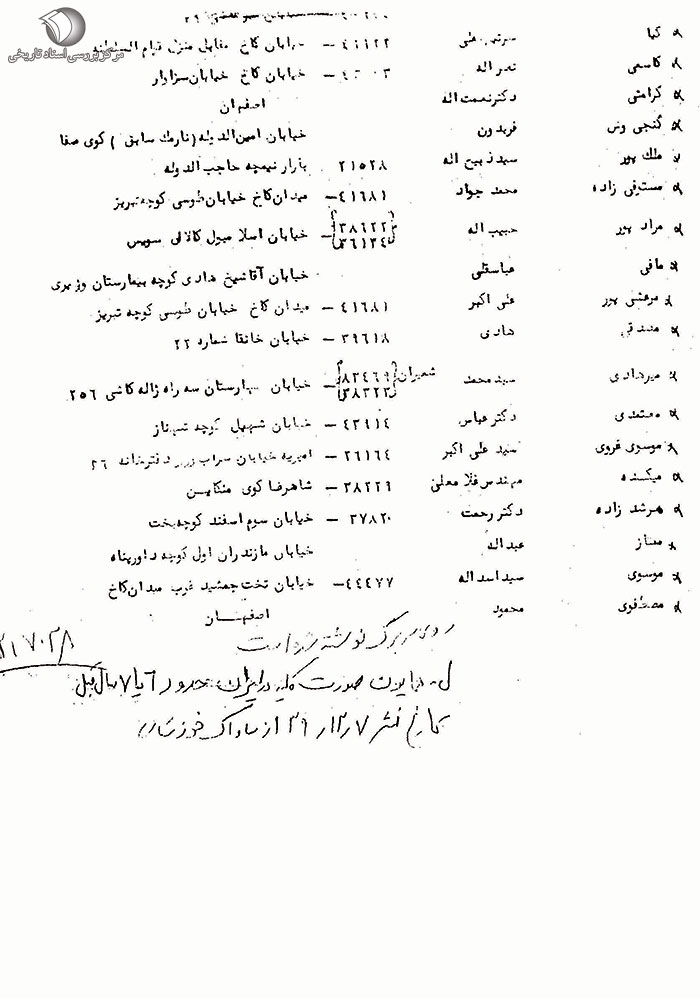 مرکز بررسی اسناد تاریخی
کیا علی ۴۱۱۲۲ – خیابان کاخ مقابل منزل قوام السلطنه
کاسمی نصراله خیابان کاخ خیابان سزاوار
کرامتی دکتر نعمت اله اصفهان
گنجی وش فریدون خیابان امین الدوله (نارمك سابق) کوی صفا
ملك پور سید ذبیح اله ۲۱۵۲۸ بازار نیمچه حاجب الدوله
مستوفی زاده محمد جواد ۴۱۶۸۱ – میدان کاخ خیابان طوسی کوچه تبریز
مراد پور حبیب اله {۳۸۶۲۲ ۳۶۱۳۴} – خیابان اسلامبول کالای سویس
مافی عباسقلی خیابان آقا شیخ هادی کوچه بیمارستان وزیری
مرعشی پور علی اکبر ۴۱۶۸۱ – میدان کاخ خیابان طوسی کوچه تبریز
مصدقی هادی ۳۹۶۱۸ – خیابان خانقا شماره ۲۲
میرهادی سید محمد شمیران {۸۳۴۶۹ ۳۸۳۲۳} – خیابان بهارستان سه راه ژاله کاشی ۲۵۶
معتمدی دکتر عباس ۴۳۹۱۴ – خیابان کوچه شهناز
موسوی قروی سید علی اکبر ۲۶۱۶۴ – امیریه خیابان دفترخانه ۲۶
میکده مهندس غلامعلی ۳۸۲۲۹ – شاهرضا کوی
مرشد زاده دکتر رحمت ۳۷۸۲۰ – خیابان سوم اسفند کوچه بخت
ممتاز عبداله خیابان مازندران اول کوچه داورپناه
موسوی سید اسداله ۴۴۴۷۷ – خیابان تخت جمشید غرب میدان کاخ
مصطفوی محمود اصفهان
روی سربرگ نوشته شده است
ل- همایون صورت کلیه در ایران حدود ۶ یا ۷ سال قبل
از ساواک خوزستان